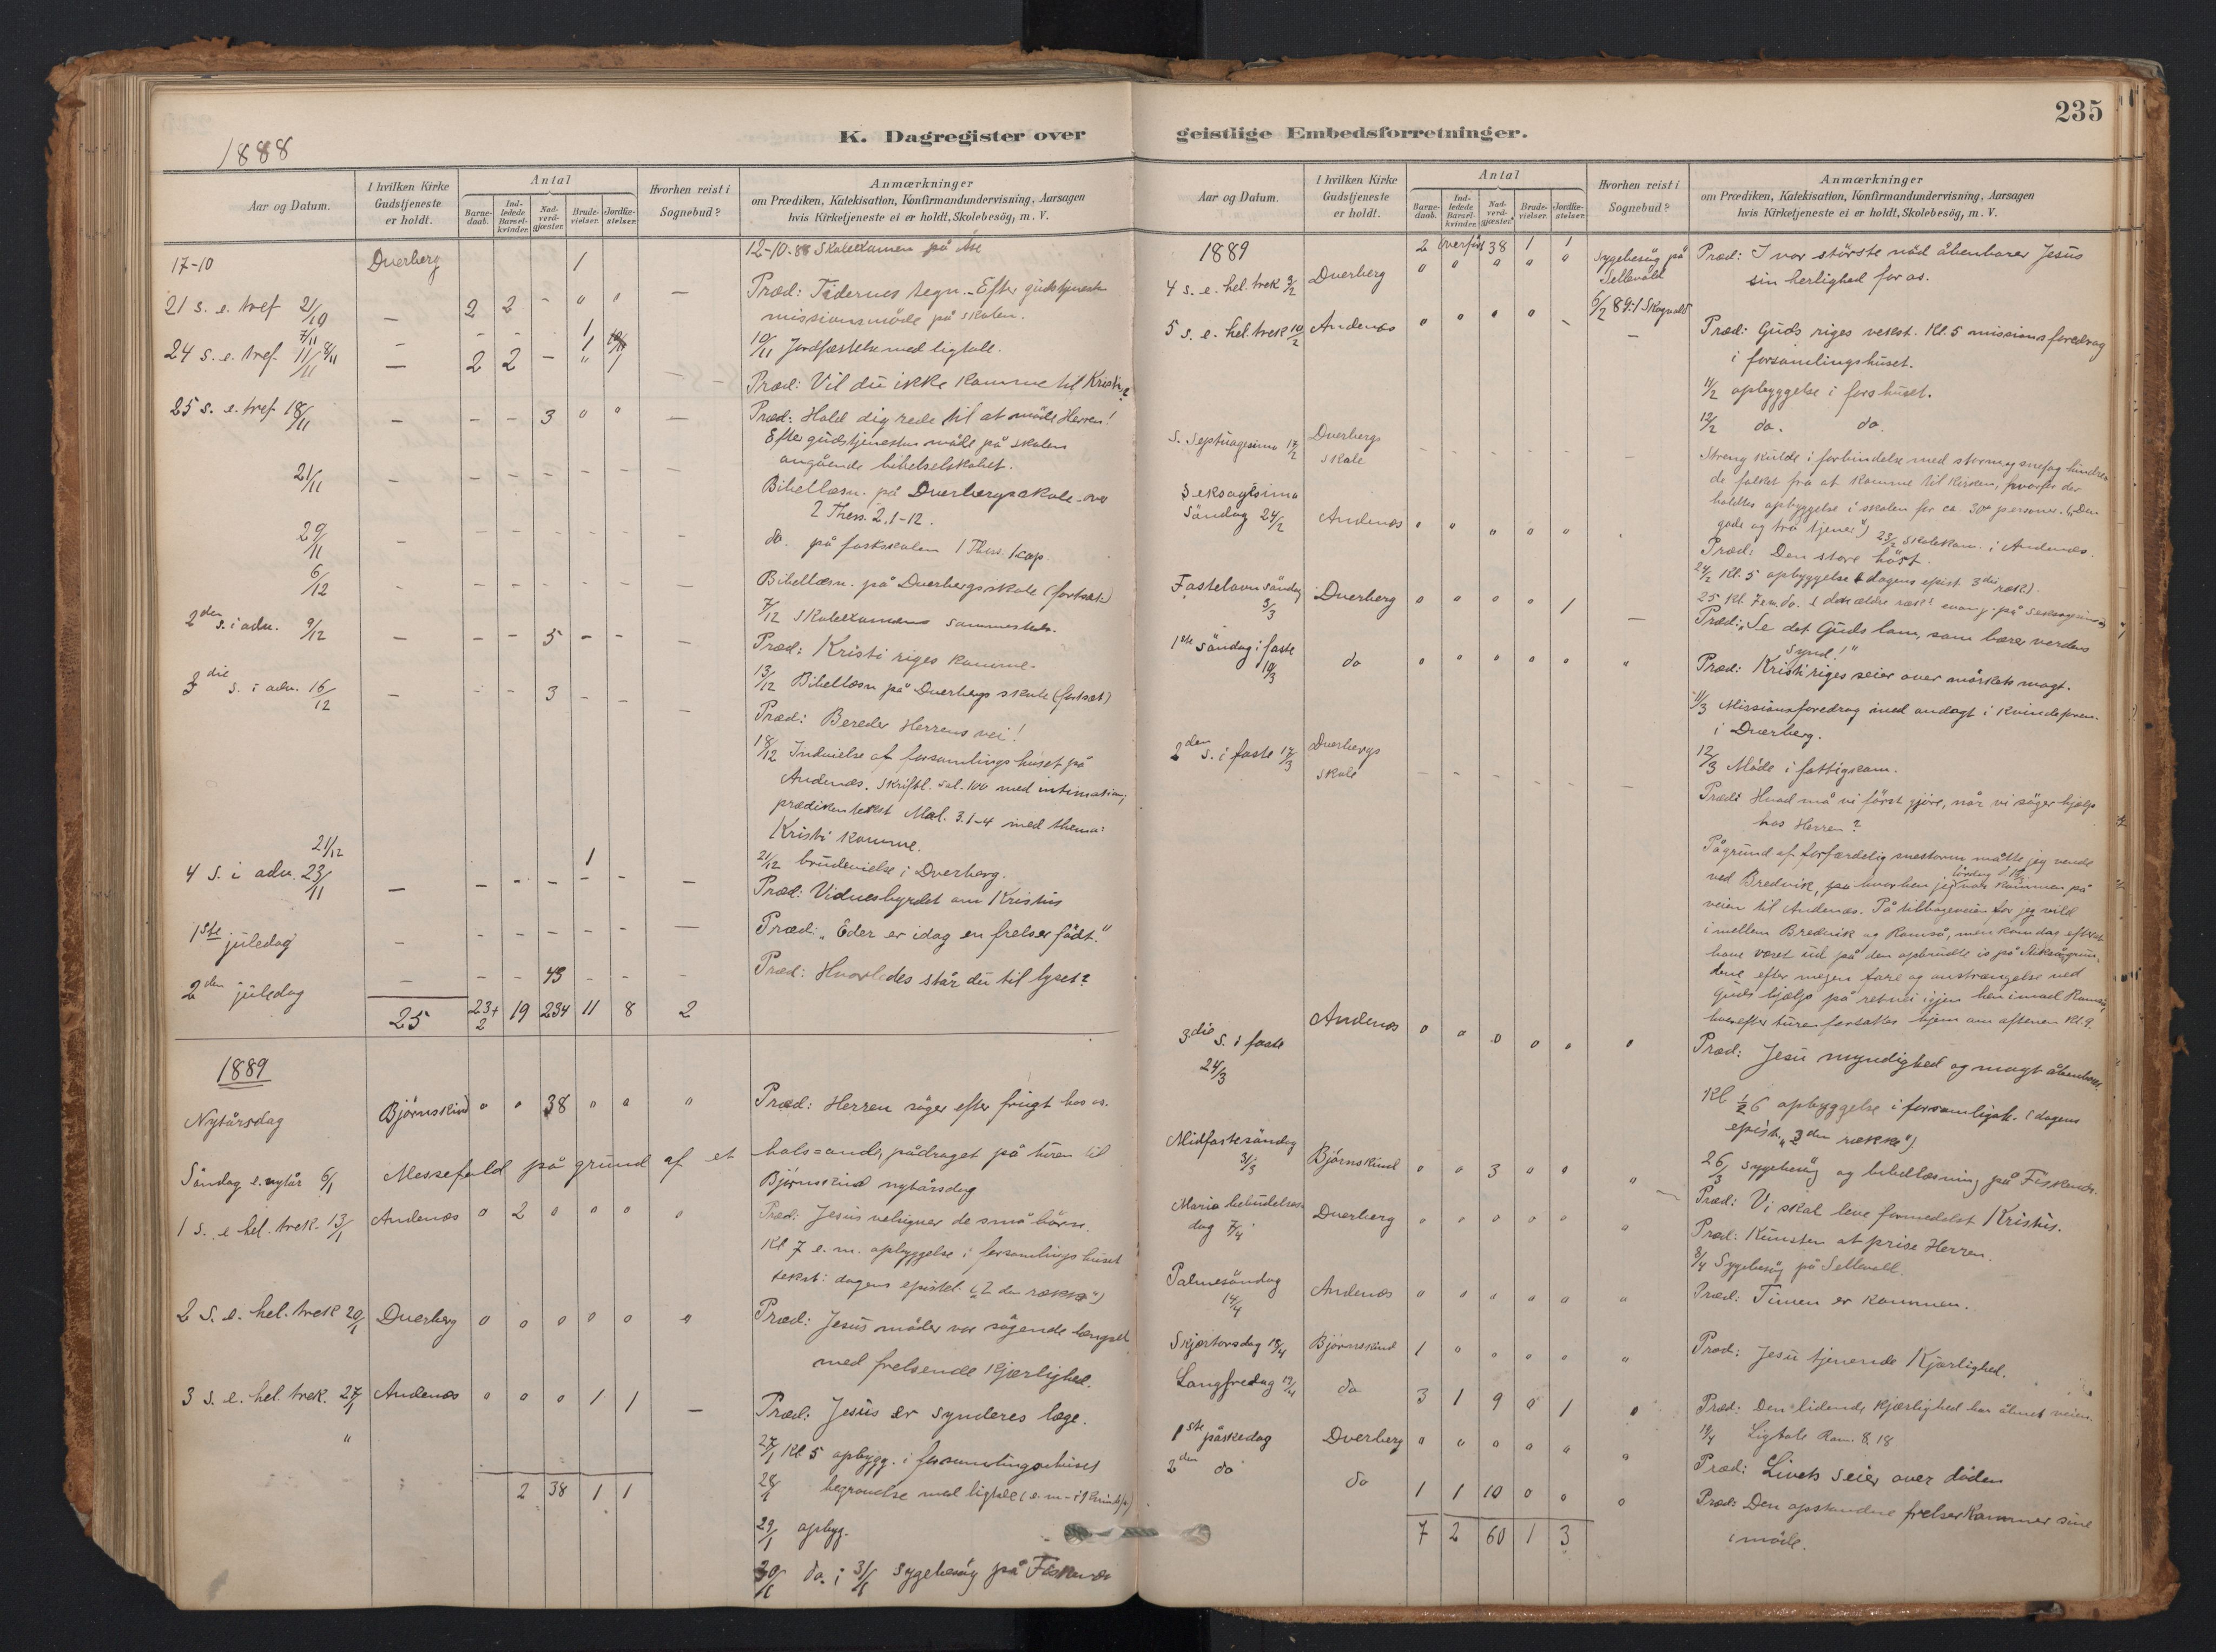 235
K. Dagregister over
geistlige Embedsforretninger.
1888
Aar og Datum.
I hvilken Kirke Gudstjeneste er holdt.
Antal
Barnedaab.
Indledede Barselkvinder.
Nadverdgjæster.
Brudevielser.
Jordfæstelser.
Hvorhen reist i Sognebud?
Anmærkninger
om Prædiken, Katekisation, Konfirmandundervisning, Aarsagen
hvis Kirketjeneste ei er holdt, Skolebesög, m. V.
17-10 Dverberg 1 12-10-88 Skoleexamen på Åse
21 s. e. tref 21/10 — 2 2 - " " — Præd: Tidernes tegn. - Efter gudstjenesten
missionsmöde på skolen.
7/11 - - 1
24 s. e. tref. 11/11 — 2 2 — " 1 10/11 Jordfæstelse med ligtale.
Præd: Vil du ikke komme til Kristus?
25 s. e. tref 18/11 — - - 3 " " — Præd: Hold dig rede til at möde Herren!
Efter gudstjenesten möte på skolen
angående bibelselskabet.
21/11 — - - - - - — Bibellæsn. på Dverbergs skole over
2 Thess. 2, 1-12.
29/11 do. på skolen 1 Thess. 1 cap.
6/12 Bibellæsn. på Dverbergs skole (fortsat)
7/12 Skoleexamen sammesteds.
2den s. i adv. 9/12 — - - 5 - - — Præd: Kristi riges komme.
13/12 Bibellæsn på Dverbergs skole (fortsat)
3die s. i adv. 16/12 — - - 3 - - — Præd: Bereder Herrens vei!
18/12 Indvielse af forsamlingshuset på
Andenæs. Skriftl. sal. 100 med intimation;
prædiken tekst Mal. 3.1-4 med thema:
Kristi komme.
21/12 1 21/12 brudevielse i Dverberg.
4 s. i adv. 23/11 — - - - - - — Præd: Vidnesbyrdet om Kristus
1ste juledag — - - - - - — Præd: "Eder er idag en frelser födt."
2den juledag — - - 43 - - - Præd: Hvorledes står du til lyset?
25 23+2 19 234 11 8 2
1889
Nytårsdag Björnskind " " 38 " " " Præd: Herren söger efter frugt hos os.
Söndag e. nytår 6/1 Messefald på grund af et halsonde, pådraget på turen til
Björnskind nytårsdag
1 s. e hel. trek. 13/1 Andenæs " 2 " " " " Præd: Jesus velsigner de små börn.
Kl 7 e. m. opbyggelse i forsamlingshuset
tekst: dagens epistel. (2 den række")
2 s. e. hel. trek 20/1 Dverberg " " " " " " Præd: Jesus möder vor sögende længsel
med frelsende kjærlighed.
3 s. e. hel. trek. 27/1 Andenæs " " " 1 1 — Præd: Jesus er synderes læge.
" 27/1 Kl 5 opbygg. i forsamlingshuset
28/1 begravelse med ligtale
2 38 1 1
29/1 opbyg.
30/1 do. ; 31/1 sygebesög på Fiskenæs
Aar og Datum.
I hvilken Kirke Gudstjeneste er holdt.
Antal
Barnedaab.
Indledede Barselkvinder.
Nadverdgjæster.
Brudevielser.
Jordfæstelser.
Hvorhen reist i Sognebud?
Anmærkninger
om Prædiken, Katekisation, Konfirmandundervisning, Aarsagen
hvis Kirketjeneste ei er holdt, Skolebesög, m. V.
1889 2 overfört 38 1 1
4 s. e. hel. trek 3/2 Dverberg " " " " " Sygebesög på Sellevold Præd: I vor störste nöd åbenbarer Jesus
sin herlighed for os.
6/2 89: 1 Skogvold
5 s. e. hel. trek 10/2 Andenæs " " " " - — Præd: Guds riges vekst. Kl. 5 missionsforedrag
i forsamlingshuset.
11/2 opbyggelse i forshuset.
12/2 do. do.
S. Septuagesima 17/2 Dverbergs skole - - - - - - Streng kulde i forbindelse med storm og snefog hindre-
de folket fra at komme til kirken, hvorfor der
holdtes opbyggelse i skolen for ca. 30 personer. ("Den
gode og tro tjener") 23/2 skolekom. i Andenæs.
Seksagesima
Söndag 24/2 Andenæs " " " " " Præd: Den store höst.
24/2 Kl. 5 opbyggelse (dagens epist. 3die ræk.)
25 Kl. 7 e. m. do.
Fastelavnsöndag 3/3 Dverberg " " " " 1 — Præd: "Se det Guds lam, som bærer verdens
synd!"
1ste söndag i faste 10/3 do " " " " " " Præd: Kristi riges seier over mörkets magt.
11/3 Missionsforedrag med andagt i kvindeforen.
i Dverberg.
12/3 Möde i fattigcom.
2den s. i faste 17/3 Dverbergs skole - - - - - Præd: Hvad må vi först gjöre, når vi söger hjælp
hos Herren?
På grund af forfærdelig snestorm måtte jeg vende
ved Bredvik, hvorhen jeg lördag var kommen på
veien til Andenæs. På tilbageveien for jeg vild
imellem Bredvik og Ramså, men kom dog efter at
have været ud på den opbrudte is på
efter megen fare og anstrængelse ved
Guds hjælp på retvei igjen hen imod Ramså,
hvorefter turen fortsattes hjem om aftenen Kl. 9.
3die s. i faste 24/3 Andenæs " " " " " " Præd: Jesu myndighed og magt åbenbares.
Kl 1/2 6 opbyggelse i forsamligsh. (dagens
epist. "3den række")
26/3 sygebesög og bibellæsning på Fiskenæs.
Midfastesöndag 31/3 Björnskind " " 3 " " " Præd: Vi skal leve formedelst Kristus.
Maria bebudelsesdag 7/4 Dverberg " " " " " " Præd: Kunsten at prise Herren.
8/4 Sygebesög på Sellevoll.
Palmesöndag 14/4 Andenæs " " " " " " Præd: Timen er kommen.
Skjærtorsdag 18/4 Björnskind 1 " " " " " Præd: Jesu tjenende Kjærlighed.
Langfredag 19/4 do 3 1 9 " 1 " Præd: Den lidende kjærlighed har åbnet veien.
19/4 Ligtale Rom. 8, 18
1ste påskedag Dverberg " " " " " " Præd: Livets seier over döden
2den do do 1 1 10 " " " Præd: Den opstandne frelser kommer sine
i möde.
7 2 60 1 3